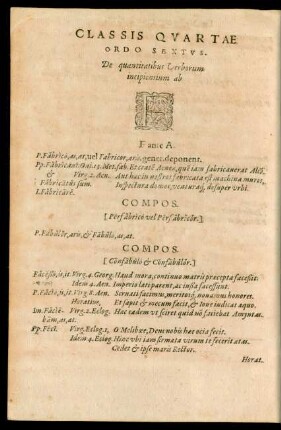 CLASSIS QVARTAE
ORDO SEXTVS.
De quantitatibus Verborum
incipientium ab
F
F ante A.
P. Fabrĭco, as, at, vel Fabricor, aris, gener. deponent.
Pp. Fabricaui. Oui. 12. Met. fab. Et erat è Acneo, qui iam fabricauerat
& Virg. 2. Aen. Aut hæc in nostros fabricata est machina muros,
Fabricatus sum. Inspectura domos, venturaq; desuper vrbi.
I. Fabricare.
COMPOS.
[ Perfabrico vel Perfabricor. ]
P. Fabulor, aris, & Fabulo, as, at.
COMPOS.
[ Confabulo & Confabulor. ]
Facesso, is, it. Virg. 4. Georg. Haud mora, continuo matris præcepta facessit.
Idem 4. Aen. Imperio læti parent, ac iussa facessunt.
P. Facio, is, it. Virg. 8. Aen. Seruati facimus, meritosq; nouamus honores.
Horatius, Et sapit & mecum facit, & Ioue iudicat æquo.
Im. Facie- Virg. 2. Eclog. Hæc eadem vt sciret quid non faciebat Amyntas.
bam, as, at.
Pp. Feci. Virg. Eclog. 1. O Melibœe, Deus nobis hæc otia fecit.
Idem 4. Eclog. Hinc vbi iam firmata virum te fecerit ætas.
Cedet & ipse mari Vector.
Horat.